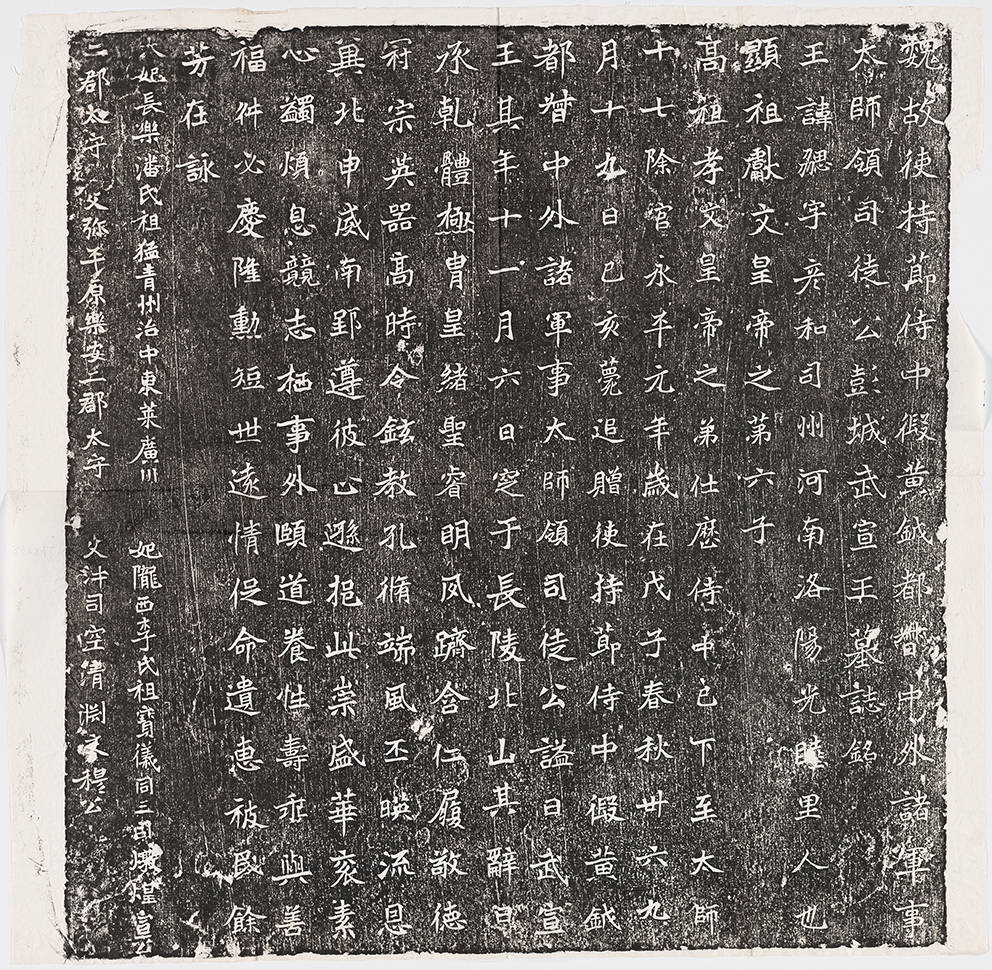 魏故使持節侍中假黃鉞都督中外諸軍事
太師領司徒公彭城武宣王墓誌銘
王諱勰字彥和司州河南洛陽光睦里人也
顯祖獻文皇帝之第六子
高祖孝文皇帝之弟仕歷侍中已下至太師
十七除官永平元年歲在戊子春秋卅六九
月十九日己亥薨追贈使持節侍中假黃鉞
都督中外諸軍事太師領司徒公諡曰武宣
王其年十一月六日窆于長陵北山其辭曰
承乾體極胄皇緒聖睿明夙躋含仁履敬德
冠宗英器高時令鉉教孔脩端風丕映流恩
冀北申威南郢遵彼止遜挹此崇盛華袞素
心蠲煩息競志栖事外頤道養性壽乖與善
福舛必慶隆勳短世遠情促命遺惠被民餘
芳在詠
太妃長樂潘氏祖猛青州治中東萊廣川
二郡太守 父彌平原樂安二郡太守
妃隴西李氏祖寶儀同三司燉煌宣公
父沖司空清淵文穆公